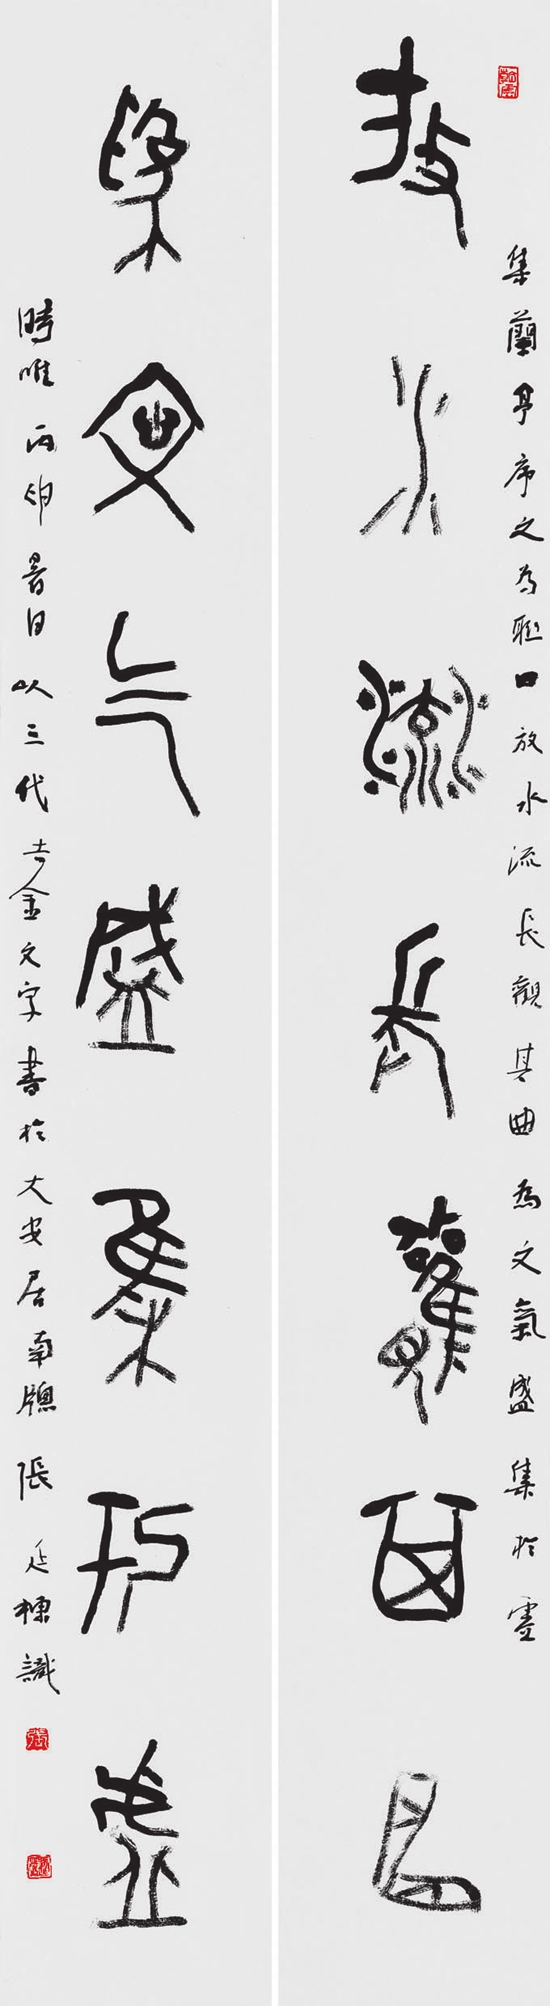 放水流長觀其曲
為文氣盛集於虛
集蘭亭序之為聯曰放水流長觀其曲為文氣盛集於虛
時唯丙申暑日以三代吉金文字書於大安居南牕張延棟識